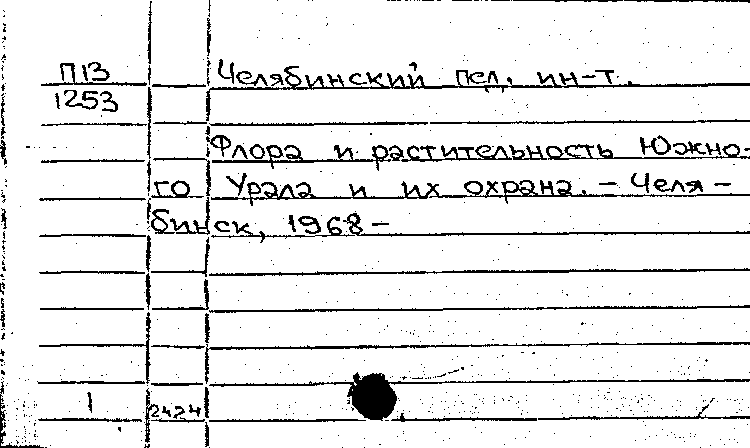 П13 Челябинский пед. ин-т.
1253
Флора и растительность Южно-
го Урала и их охрана. – Челя –
бинск, 1968 –
1 2424